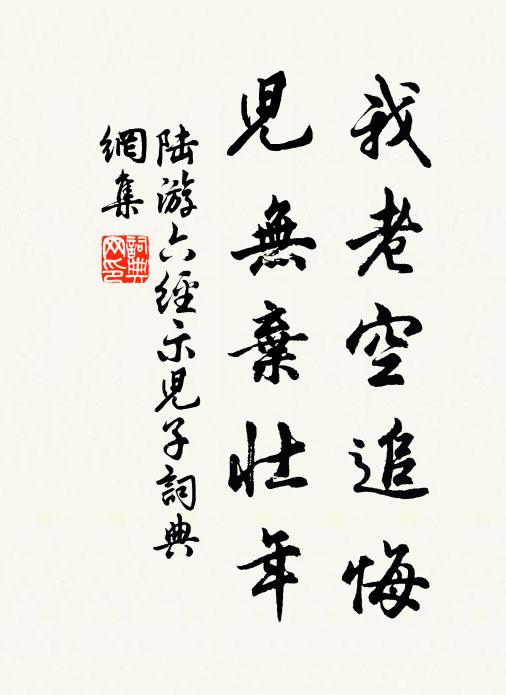 我老空追悔
兒無棄壯年
陆游六經示兒子詞典
網集
詞典网印